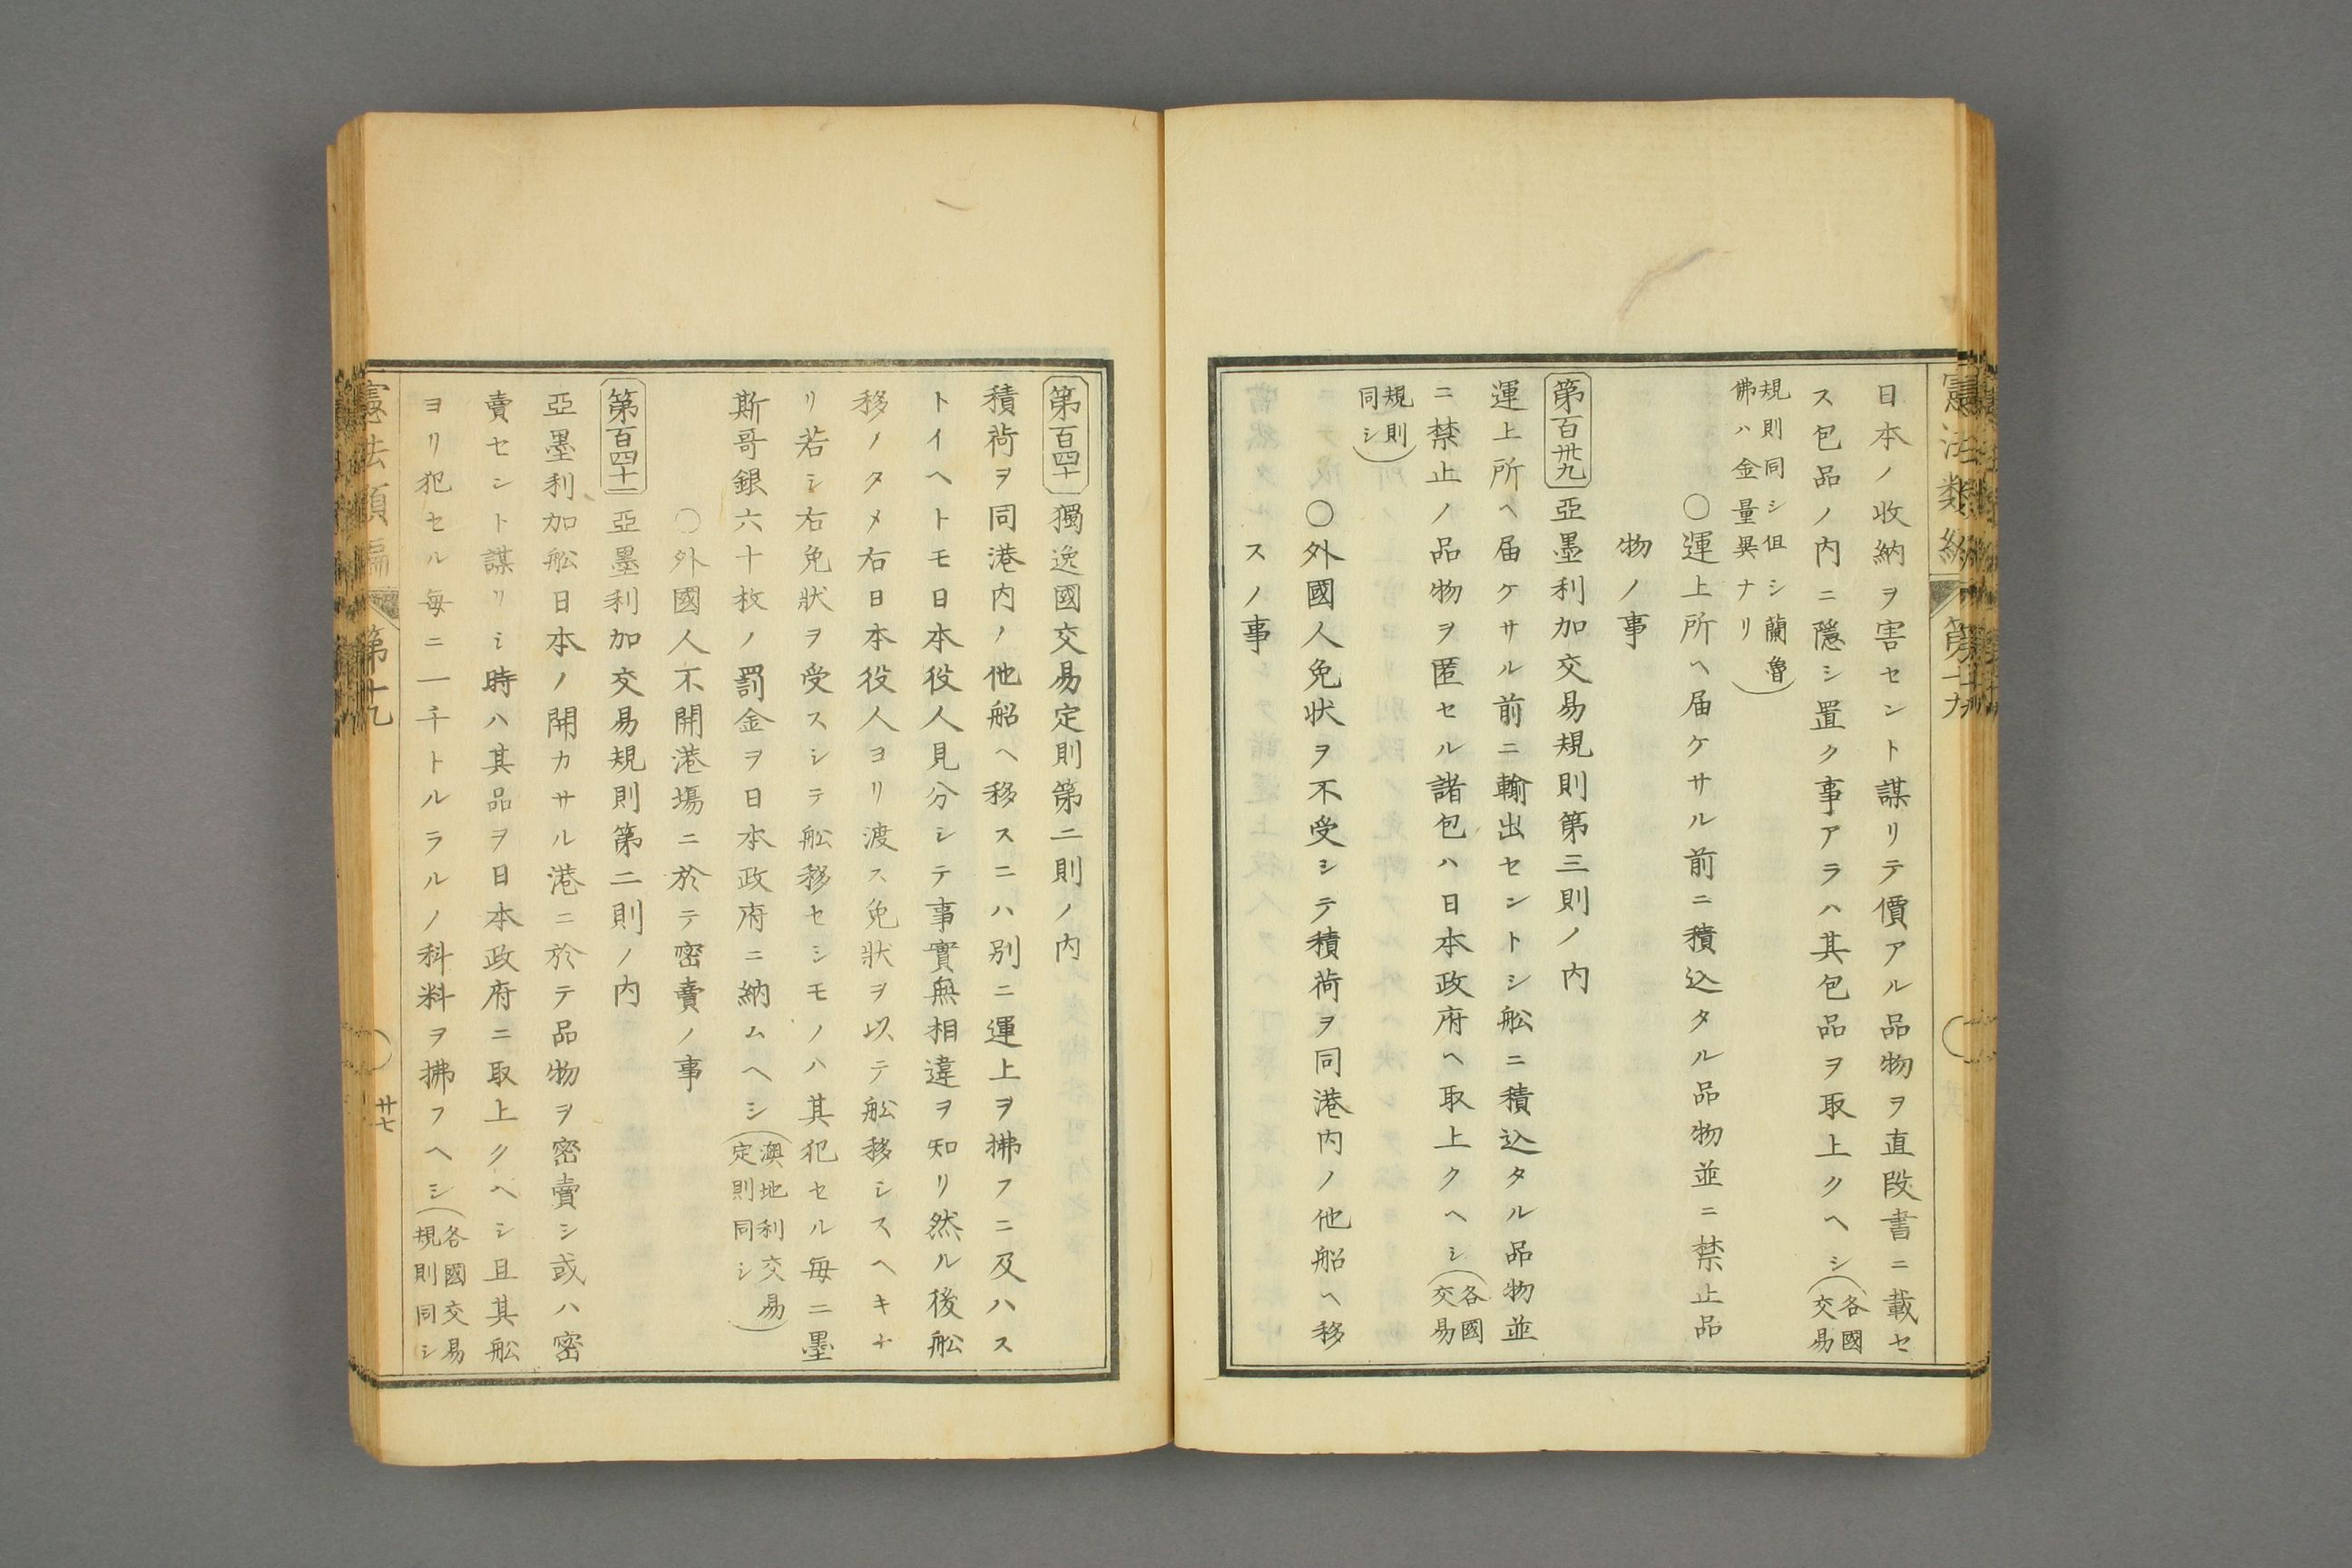 日本ノ收納ヲ害セント謀リテ價アル品物ヲ直段書ニ載セ
ス包品ノ内ニ隱シ置ク事アラハ其包品ヲ取上クヘシ(各國交易
規則同シ但シ蘭魯佛ハ金量異ナリ)
○運上所ヘ届ケサル前ニ積込タル品物並ニ禁止品
物ノ事
第百卅九 亞墨利加交易規則第三則ノ内
運上所ヘ届ケサル前ニ輸出セントシ舩ニ積込タル品物並
ニ禁止ノ品物ヲ匿セル諸包ハ日本政府ヘ取上クヘシ(各國交易
規則同シ)
○外國人免状ヲ不受シテ積荷ヲ同港内ノ他船ヘ移
スノ事
第百四十 獨逸國交易定則第二則ノ内
積荷ヲ同港内ノ他船ヘ移スニハ別ニ運上ヲ拂フニ及ハス
トイヘトモ日本役人見分シテ事實無相違ヲ知リ然ル後舩
移ノタメ右日本役人ヨリ渡ス免狀ヲ以テ舩移シスヘキナ
リ若シ右免狀ヲ受スシテ舩移セシモノハ其犯セル毎ニ墨
斯哥銀六十枚ノ罰金ヲ日本政府ニ納ムヘシ(澳地利交易定則同シ)
○外國人不開港塲ニ於テ密賣ノ事
第百四十一 亞墨利加交易規則第二則ノ内
亞墨利加舩日本ノ開カサル港ニ於テ品物ヲ密賣シ或ハ密
賣セシト謀リシ時ハ其品ヲ日本政府ニ取上クヘシ且其舩
ヨリ犯セル毎ニ一千トルラルノ科料ヲ拂フヘシ(各國交易規則同シ
憲法類編 第十九
廿七